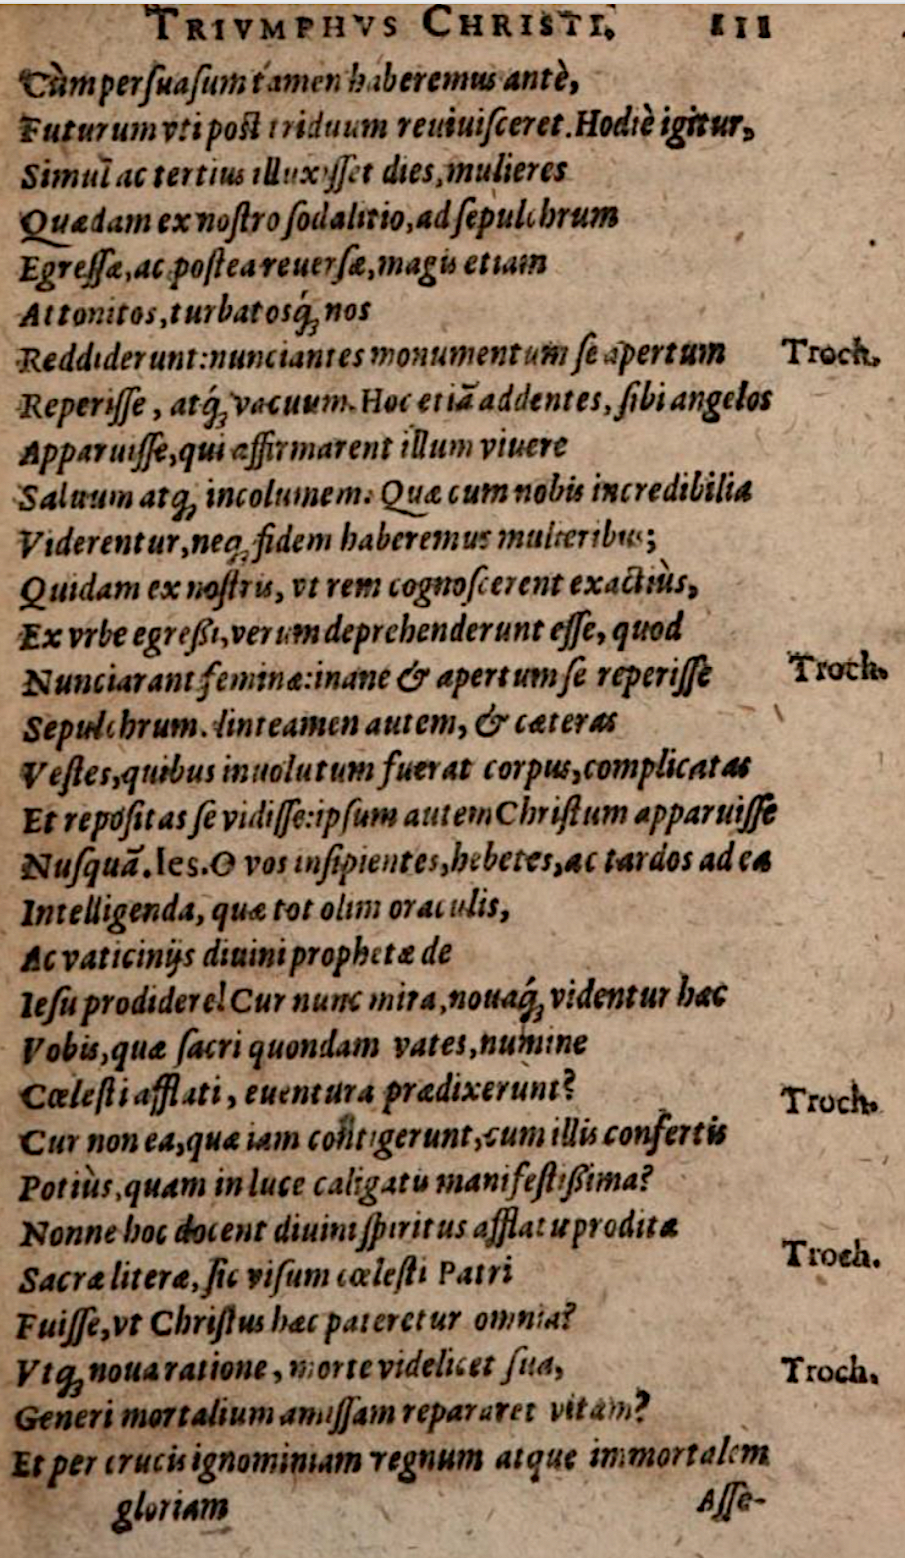 TRIVMPHVS CHRISTI. 111
Cùm persuasum tamen haberemus antè,
Futurum vti post triduum reuiuisceret. Hodiè igitur,
Simul ac tertius illuxisset dies, mulieres
Quædam ex nostro sodalitio, ad sepulchrum
Egressæ, ac postea reuersæ, magis etiam
Attonitos, turbatosq́; nos
Reddiderunt: nunciantes monumentum se apertum Troch.
Reperisse, atq́; vacuum. Hoc etiã addentes, sibi angelos
Apparuisse, qui affirmarent illum viuere
Saluum atq; incolumem. Quæ cum nobis incredibilia
Viderentur, neq; fidem haberemus mulieribus;
Quidam ex nostris, vt rem cognoscerent exactiùs,
Ex vrbe egreßi, verum deprehenderunt esse, quod
Nunciarant feminæ: inane & apertum se reperisse Troch.
Sepulchrum. linteamen autem, & cæteras
Vestes, quibus inuolutum fuerat corpus, complicatas
Et repositas se vidisse: ipsum autem Christum apparuisse
Nusquã. Ies. O vos insipientes, hebetes, ac tardos ad ea
Intelligenda, quæ tot olim oraculis,
Ac vaticinijs diuini prophetæ de
Iesu prodidere! Cur nunc mira, nouaq́; videntur hæc
Vobis, quæ sacri quondam vates, numine
Cœlesti afflati, euentura prædixerunt? Troch.
Cur non ea, quæ iam contigerunt, cum illis confertis
Potiùs, quam in luce caligatis manifestißima?
Nonne hoc docent diuini spiritus afflatu proditæ
Sacræ literæ, sic visum cœlesti Patri Troch.
Fuisse, vt Christus hæc pateretur omnia?
Vtq; noua ratione, morte videlicet sua, Troch.
Generi mortalium amissam repararet vitam?
Et per crucis ignominiam regnum atque immortalem
gloriam Asse-